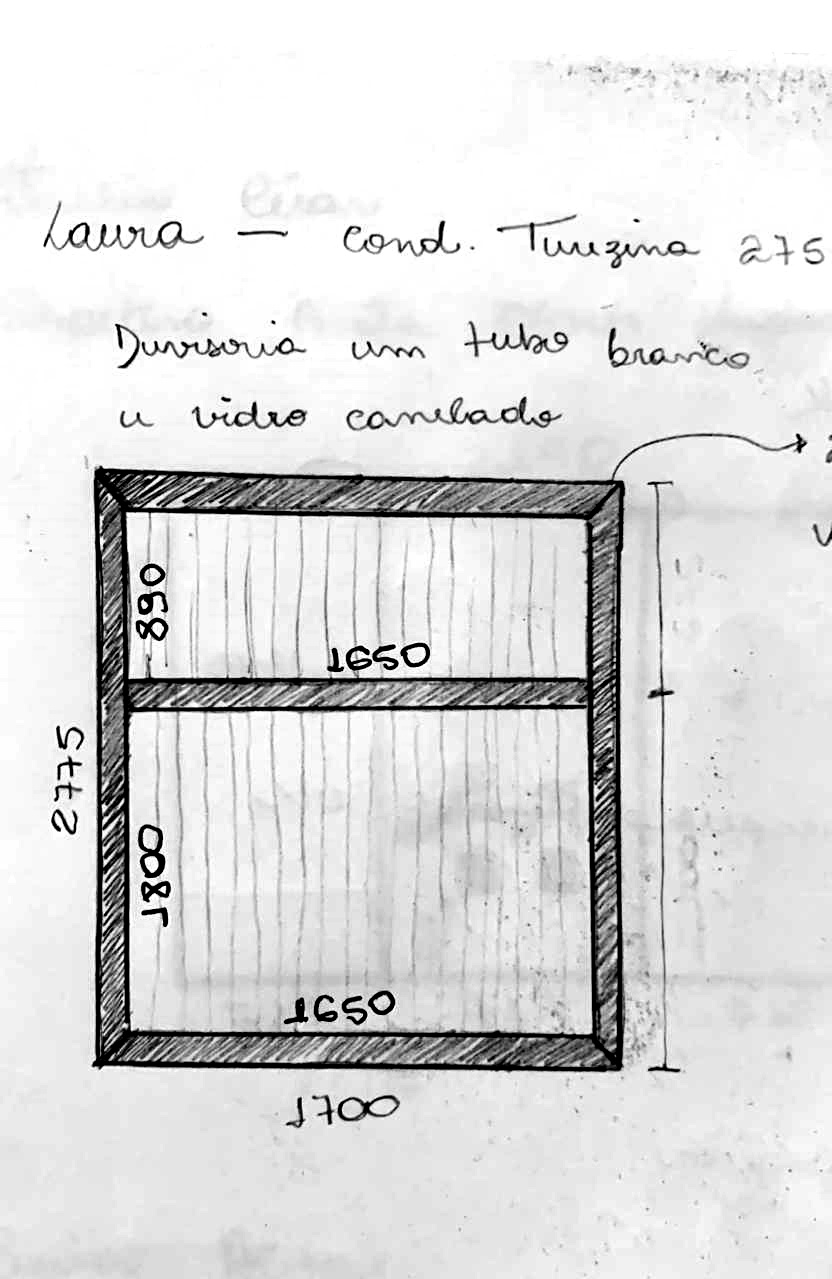 Laura — cond. Turezina 275
Divisoria um tubo branco
u vidro canelado
890
1650
2775
1800
1650
1700